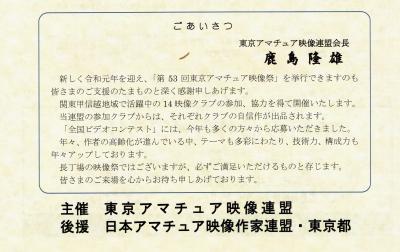 ごあいさつ
東京アマチュア映像連盟会長
鹿島隆雄
新しく令和元年を迎え、「第53回東京アマチュア映像祭」を挙行できますのも
皆さまのご支援のたまものと深く感謝申しあげます。
関東甲信越地域で活躍中の14映像クラブの参加、協力を得て開催いたします。
当連盟の参加クラブからは、それぞれクラブの自信作が出品されます。
「全国ビデオコンテスト」には、今年も多くの方々から応募いただきました。
年々、作者の高齢化が進んでいる中、テーマも多彩にわたり、技術力、構成力も
年々アップしております。
長丁場の映像祭ではございますが、必ずご満足いただけるものと存じます。
皆さまのご来場を心からお待ち申しあげております。
主催 東京アマチュア映像連盟
後援 日本アマチュア映像作家連盟・東京都